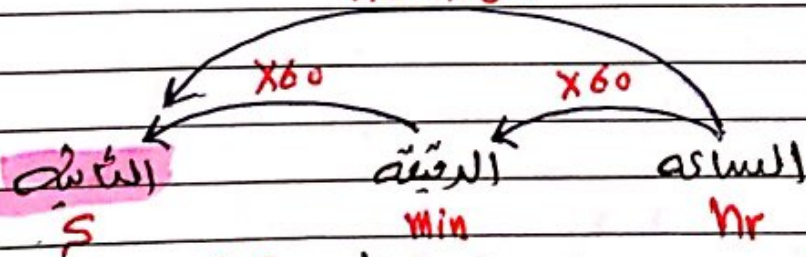 ×60 ×60
الساعه الدقيقة الثانيه
hr min s